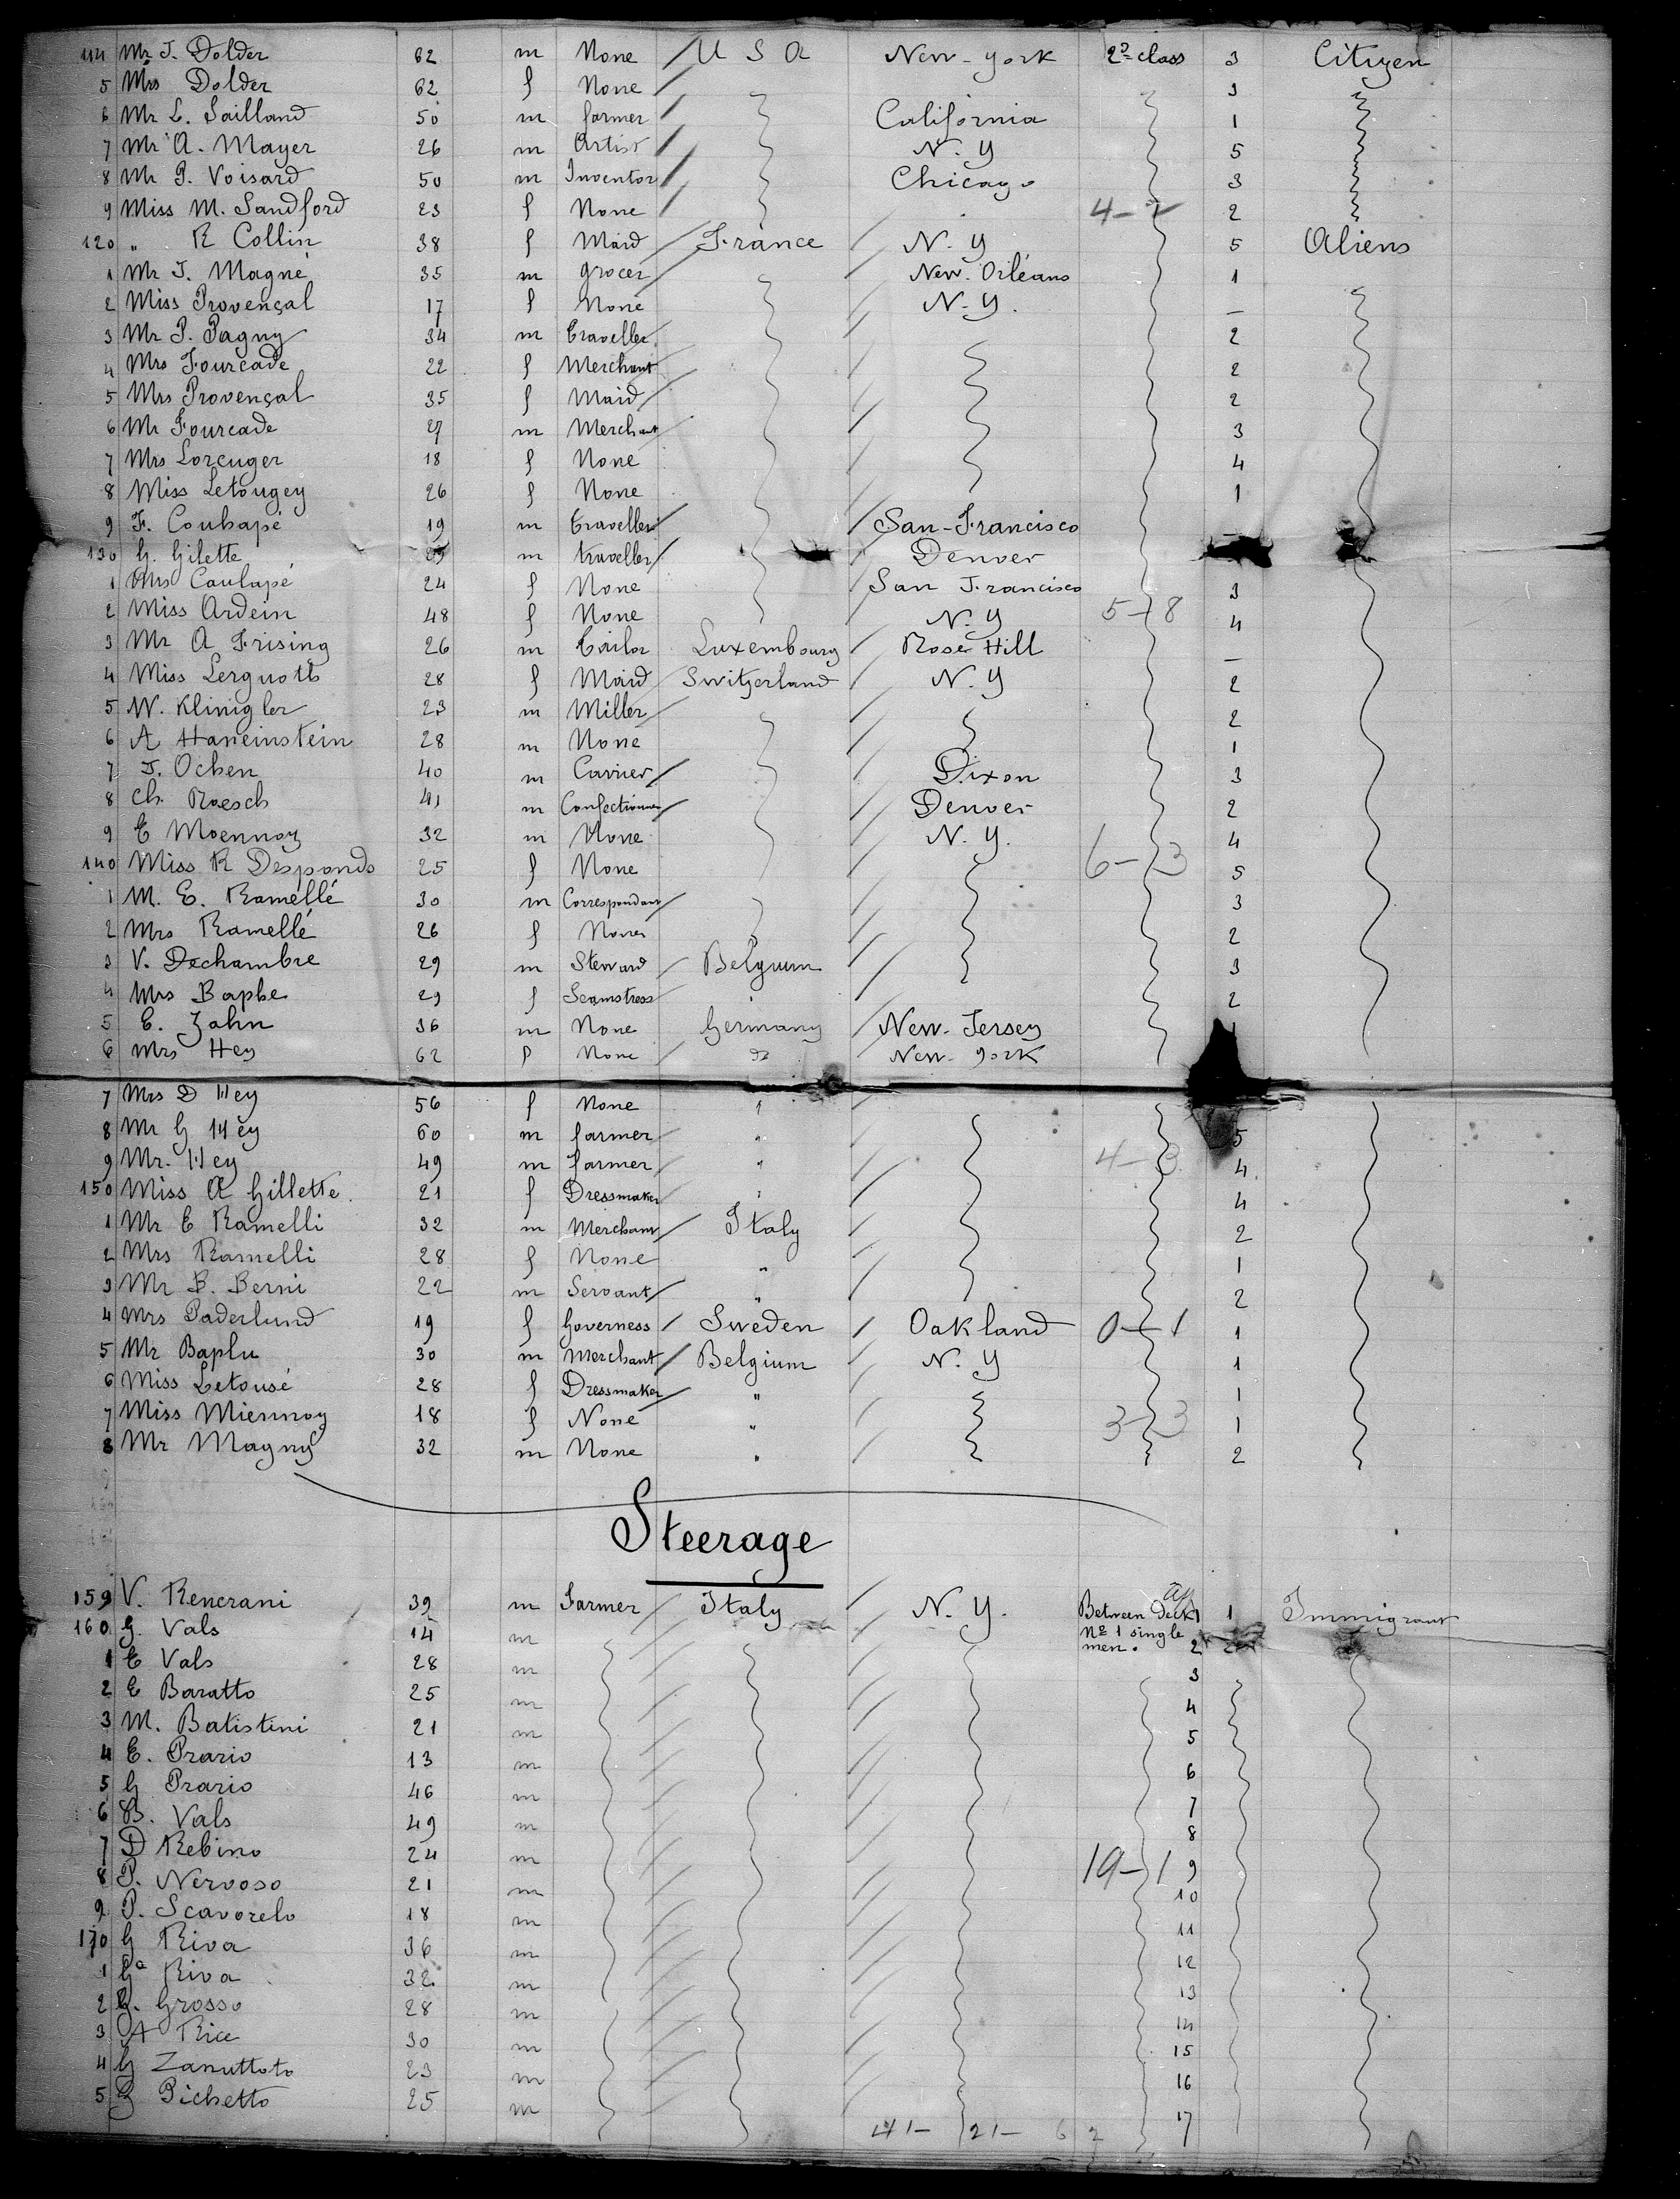 114 Mr J. Dolder 62 m None U S A New-York 2d class 3 Citizen
5 Mrs Dolder 62 f None 3
6 Mr L. Sailland 50 m farmer California 1
7 Mr A. Mayer 26 m Artist N. Y 5
8 Mr P. Voisard 50 m Inventor Chicago 3
9 Miss M. Sandford 23 f None 4- 2
120 " R Collin 38 f Maid France N. Y 5 Aliens
1 Mr J. Magné 35 m grocer New-Orléans 1
2 Miss Provençal 17 f None N. Y. —
3 Mr P. Pagny 34 m traveller 2
4 Mrs Fourcade 22 f Merchant 2
5 Mrs Provençal 35 f Maid 2
6 Mr Fourcade 27 m Merchant 3
7 Mrs Lorcuger 18 f None 4
8 Miss Letougey 26 f None 1
9 F. Couhapé 19 m traveller San-Francisco
130 G. Gilette m traveller Denver
1 Mrs Caulapé 24 f None San Francisco 3
2 Miss Ardein 48 f None N. Y 5-8 4
3 Mr A Frising 26 m tailor Luxembourg Rose Hill —
4 Miss Lerguoth 28 f Maid Switzerland N. Y 2
5 W. Klinigler 23 m Miller 2
6 A Haneinstein 28 m None 1
7 J. Ochen 40 m Carrier Dixon 3
8 Ch. Roesch 41 m Confectionner Denver 2
9 E Moennoz 32 m None N. Y. 4
140 Miss R Desponds 25 f None 6-3 5
1 M. E. Ramellé 30 m Correspondant 3
2 Mrs Ramellé 26 f None 2
3 V. Dechambre 29 m Steward Belgium 3
4 Mrs Baphe 29 f Seamstress " 2
5 E. Zahn 36 m None Germany New-Jersey
6 Mrs Hey 62 f None do New-york
7 Mrs D Hey 56 f None "
8 Mr G Hey 60 m farmer " 5
9 Mr. Hey 49 m farmer " 4-3 4
150 Miss A Gillette. 21 f Dressmaker " 4
1 Mr E Ramelli 32 m Merchant Italy 2
2 Mrs Ramelli 28 f None " 1
3 Mr B. Berni 22 m Servant " 2
4 Mrs Paderlund 19 f Governess Sweden Oakland 0-1 1
5 Mr Baplu 30 m Merchant Belgium N. Y 1
6 Miss Letousé 28 f Dressmaker " 1
7 Miss Miennoy 18 f None " 3-3 1
8 Mr Magny 32 m None " 2
Steerage
159 V. Rencrani 39 m Farmer Italy N. Y. Between Deck 1 1 Immigrant
160 G. Vals 14 m Nº 1 single men. 2
1 E Vals 28 m 3
2 E Baratto 25 m 4
3 M. Batistini 21 m 5
4 E. Prario 13 m 6
5 G Prario 46 m 7
6 B. Vals 49 m 8
7 D Rebino 24 m 19-1 9
8 P. Nervoso 21 m 10
9 P. Scavorelo 18 m 11
170 G Riva 36 m 12
1 Ga Riva 32 m 13
2 G. Grosso 28 m 14
3 A Rice 30 m 15
4 G Zanuttoto 23 m 16
5 G Pichetto 25 m 17
41- 21- 62